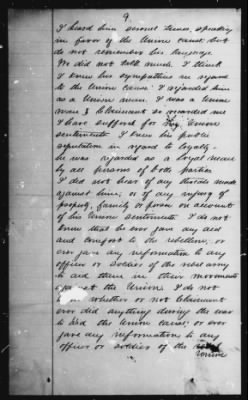 9
I heard him several times, speaking
in favor of the Union cause, but
do not remember his language
We did not talk much. I think
I knew his sympathies in regard
to the Union cause. I regarded him
as a Union man. I was a Union
man & Claimant so regarded me
I have suffered for my Union
sentiments I knew his public
reputation in regard to loyalty -
he was regarded as a loyal man
by all persons of both parties
I did not hear of any threats made
against him, or of any injury of
property, family or person on account
of his Union sentiments. I do not
know that he ever gave any aid
and comfort to the rebellion, or
ever gave any information to any
officer or soldier of the rebel army
to aid them in their movements
against the Union. I do not
whether or not Claimant
ever did anything during the war
to aid the Union cause, or ever
gave any information to any
officer or soldier of the
Union